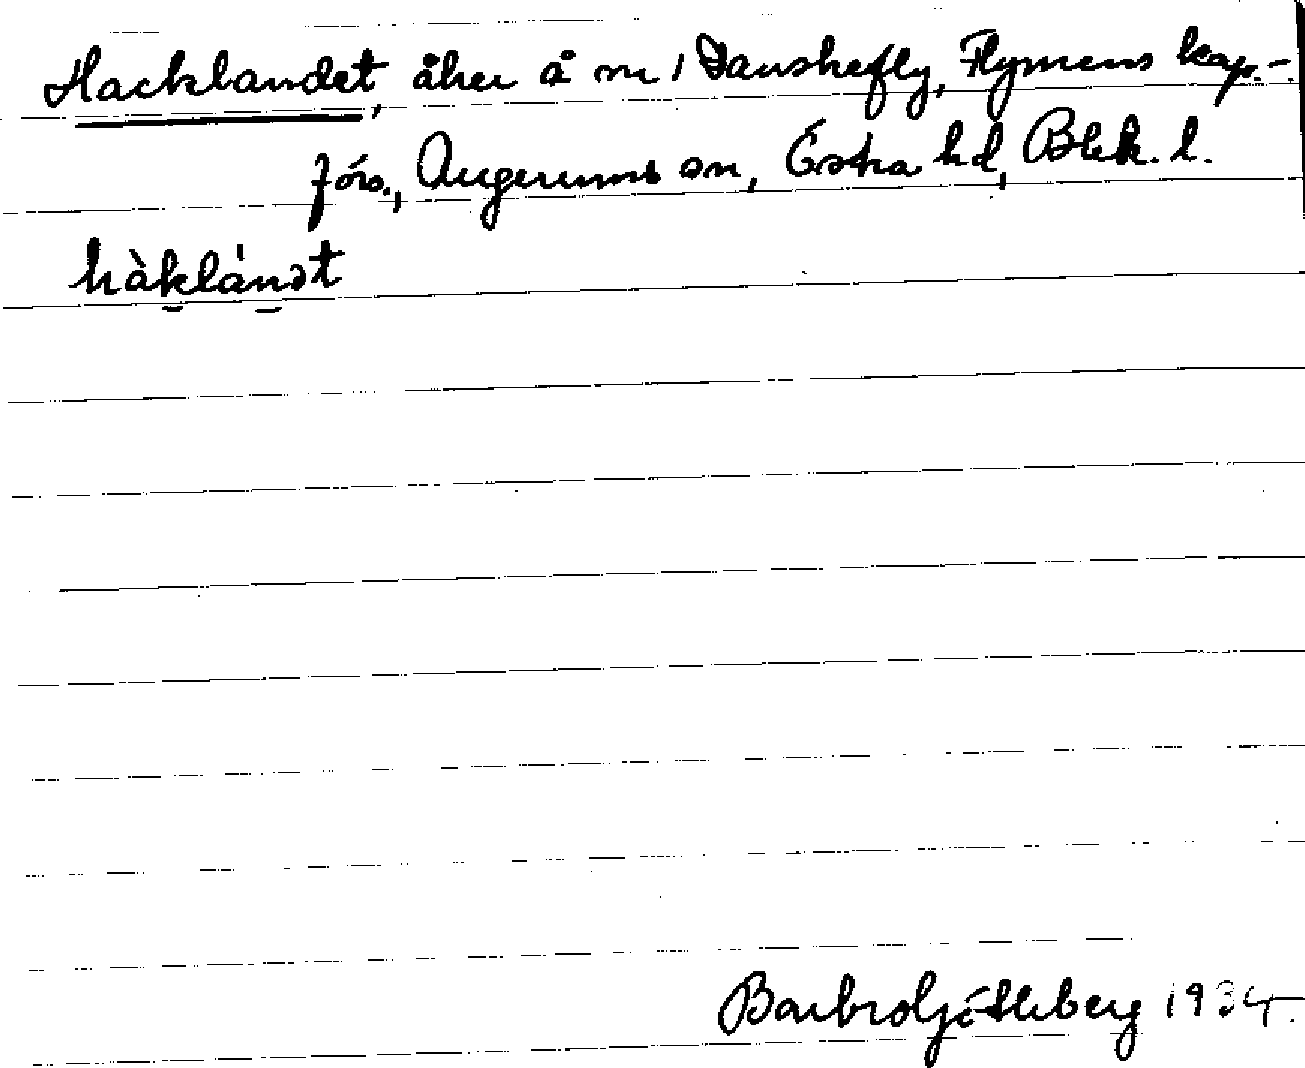 Hacklandet, åker å nr 1 Danskefly, Flymens kap.-
förs., Augerums sn, Östra hd, Blek. l.
hàklánət
Barbro Söderberg 1934.